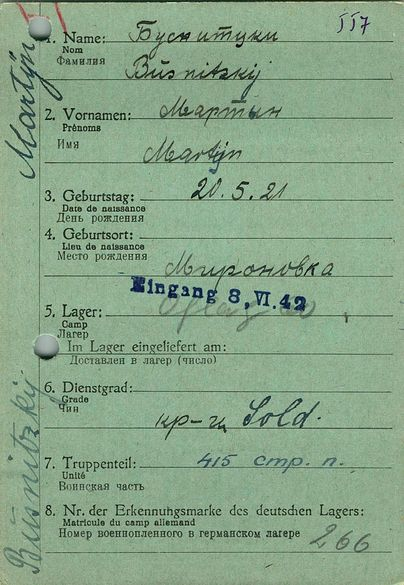 117
1. Name: Буснитуки
Nom
Фамилия
Büsnitzkij
2. Vornamen: Мартин
Prénoms
Имя
Martijn
3. Geburtstag: 20.5.21
Date de naissance
День рождения
4. Geburtsort:
Lieu de naissance
Место рождения
Мироновка
Eingang 8. VI. 42
5. Lager:
Camp
Лагерь
Im Lager eingeliefert am:
Доставлен в лагерь (число)
6. Dienstgrad:
Grade
Чин
кр-ц Sold.
7. Truppenteil: 415 стр. п.
Unité
Воинская часть
8. Nr. der Erkennungsmarke des deutschen Lagers:
Matricule du camp allemand
Номер военнопленного в германском лагере
266
Büsnitzkij Martijn